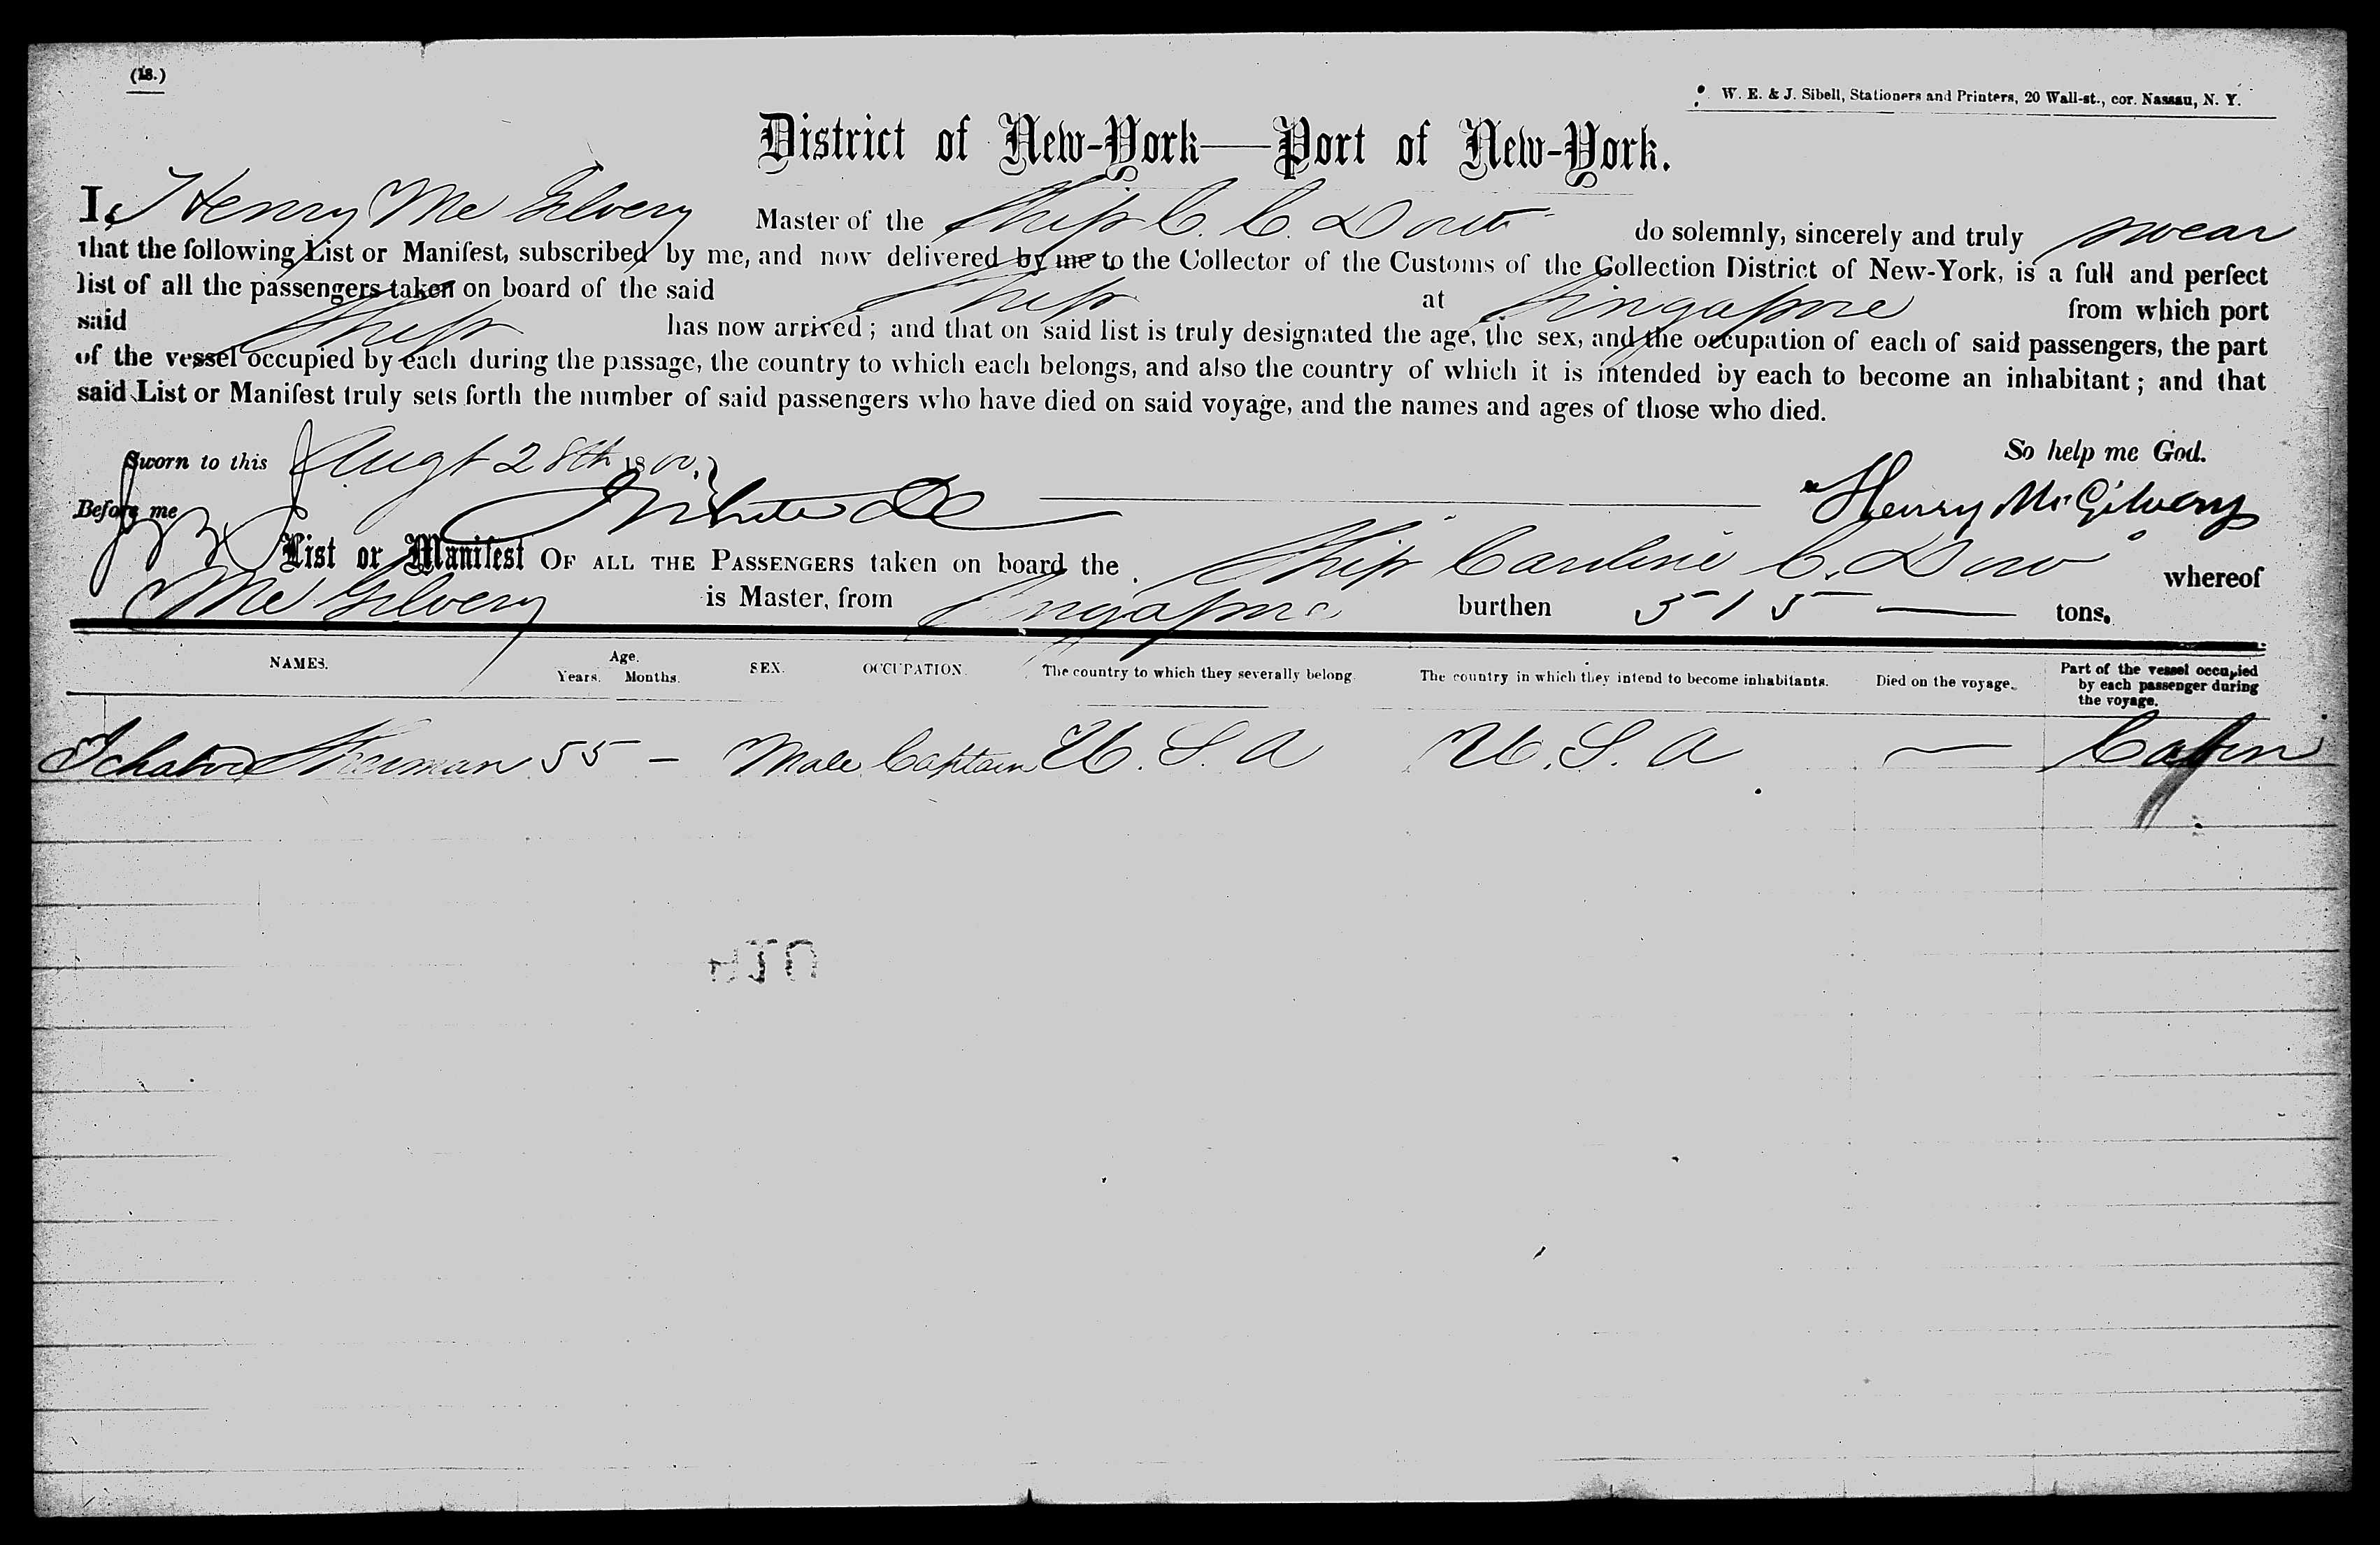 (18.)
W. E. & J. Sibell, Stationers and Printers, 20 Wall-st., cor. Nassau, N. Y.
District of New-York—Port of New-York.
I, Henry Mc Gilvery Master of the Ship C. C. Dow do solemnly, sincerely and truly swear
that the following List or Manifest, subscribed by me, and now delivered by me to the Collector of the Customs of the Collection District of New-York, is a full and perfect
list of all the passengers taken on board of the said Ship at Singapore from which port
said Ship has now arrived; and that on said list is truly designated the age, the sex, and the occupation of each of said passengers, the part
of the vessel occupied by each during the passage, the country to which each belongs, and also the country of which it is intended by each to become an inhabitant; and that
said List or Manifest truly sets forth the number of said passengers who have died on said voyage, and the names and ages of those who died.
Sworn to this Augt 28th 18 So help me God.
Before me Henry McGilvery
List or Manifest OF ALL THE PASSENGERS taken on board the Ship Caroline C. Dow whereof
Mc Gilvery is Master, from Singapore burthen 515 — tons.
NAMES. Age. Years. Months. SEX. OCCUPATION. The country to which they severally belong. The country in which they intend to become inhabitants. Died on the voyage. Part of the vessel occupied by each passenger during the voyage.
55 — Male Captain U. S. A U. S. A — Cabin